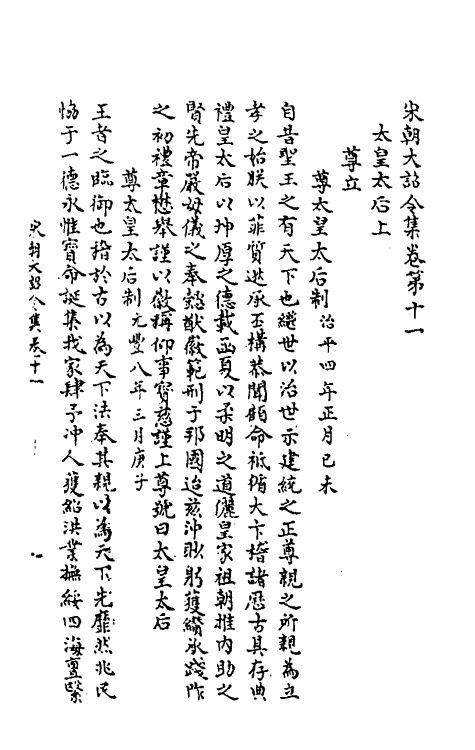 宋朝大詔令集卷第十一
太皇太后上
尊立
尊太皇太后制治平四年正月己未
自昔聖王之有天下也繼世以治世示建統之正尊親之所親為立
孝之始朕以菲質逰承丕構恭聞顧命祗循大卞稽諸歷古具存典
禮皇太后以坤厚之德載函夏以柔明之道儷皇家祖朝推內助之
賢先帝嚴母儀之奉懿猷徽範刑于邦國迨茲沖眇躬獲纘承踐阼
之初禮章懋舉謹以徽稱仰事寶慈謹上尊號曰太皇太后
尊太皇太后制元豐八年三月庚子
王者之臨御也稽於古以為天下法奉其親以為天下先靡然兆民
恊于一德永惟寶命誕集我家肆予沖人獲紹洪業撫綏四海亶繄
宋朝大詔令集卷十一
一